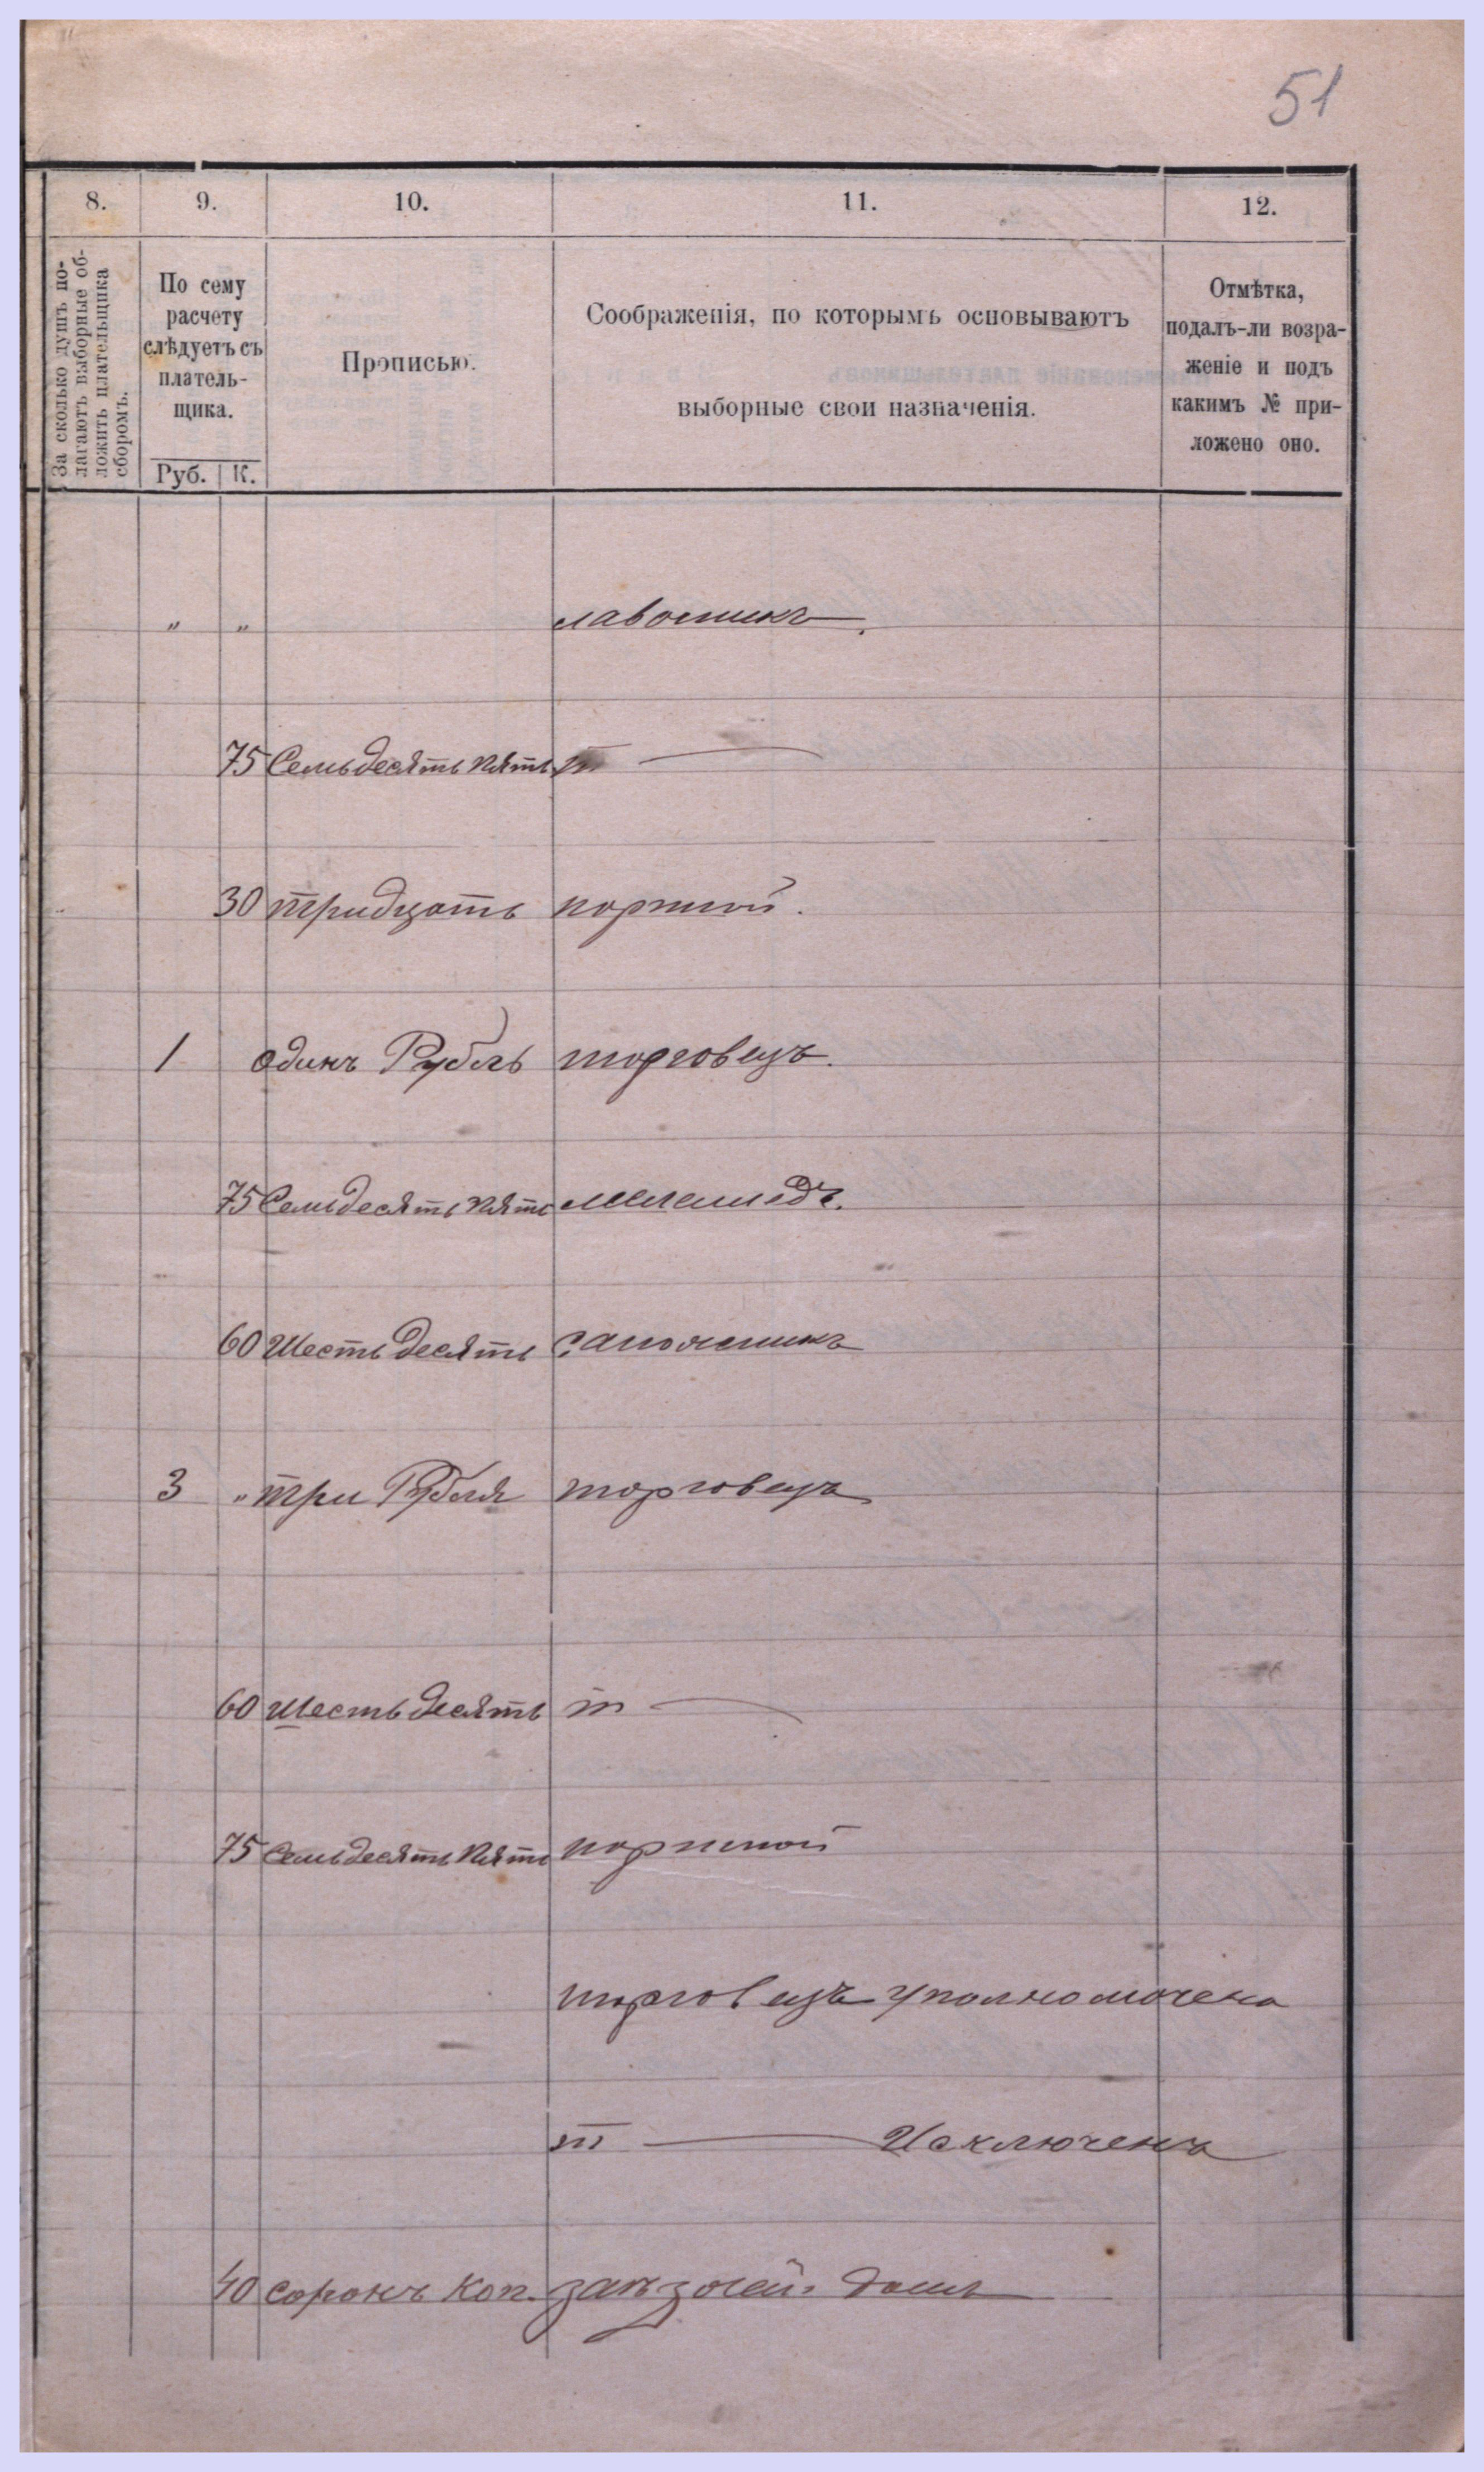 51
8. 9. 10. 11. 12.
За сколько душъ по-
лагаютъ выборные об-
ложить плательщика
сборомъ.
По сему
расчету
слѣдуетъ съ
платель-
щика.
Руб. К.
Прописью.
Соображенія, по которымъ основываютъ
выборные свои назначенія.
Отмѣтка,
подалъ-ли возра-
женіе и подъ
какимъ № при-
ложено оно.
„ „ лавошникъ.
75 Семьдесять пять т —
30 тридцать портной.
1 одинъ Рубль торговецъ.
75 Семьдесять пять меламедъ.
60 Шестьдесять сапожникъ
3 „ три Рубля торговецъ
60 шестьдесять т —
75 Семьдесять пять портной
торговецъ уполномоченъ
т — Исключенъ
40 сорокъ коп. заѣзжей домъ